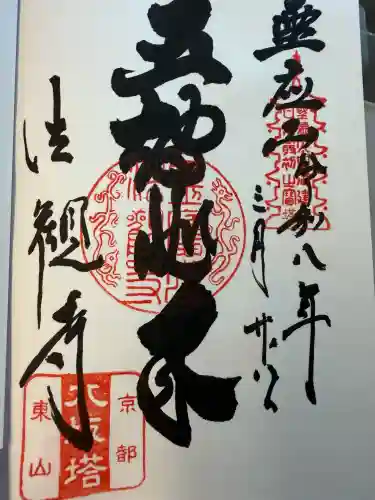 霊応山 令和八年
三月廿
五智如来
法観寺
京都
八坂塔
東山